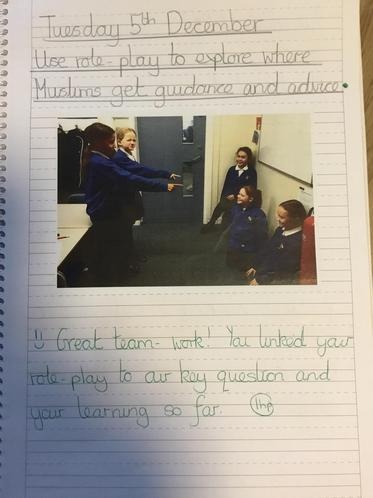 Tuesday 5th December
Use role-play to explore where
Muslims get guidance and advice.
Great team-work! You linked your
role-play to our key question and
your learning so far. 1hp